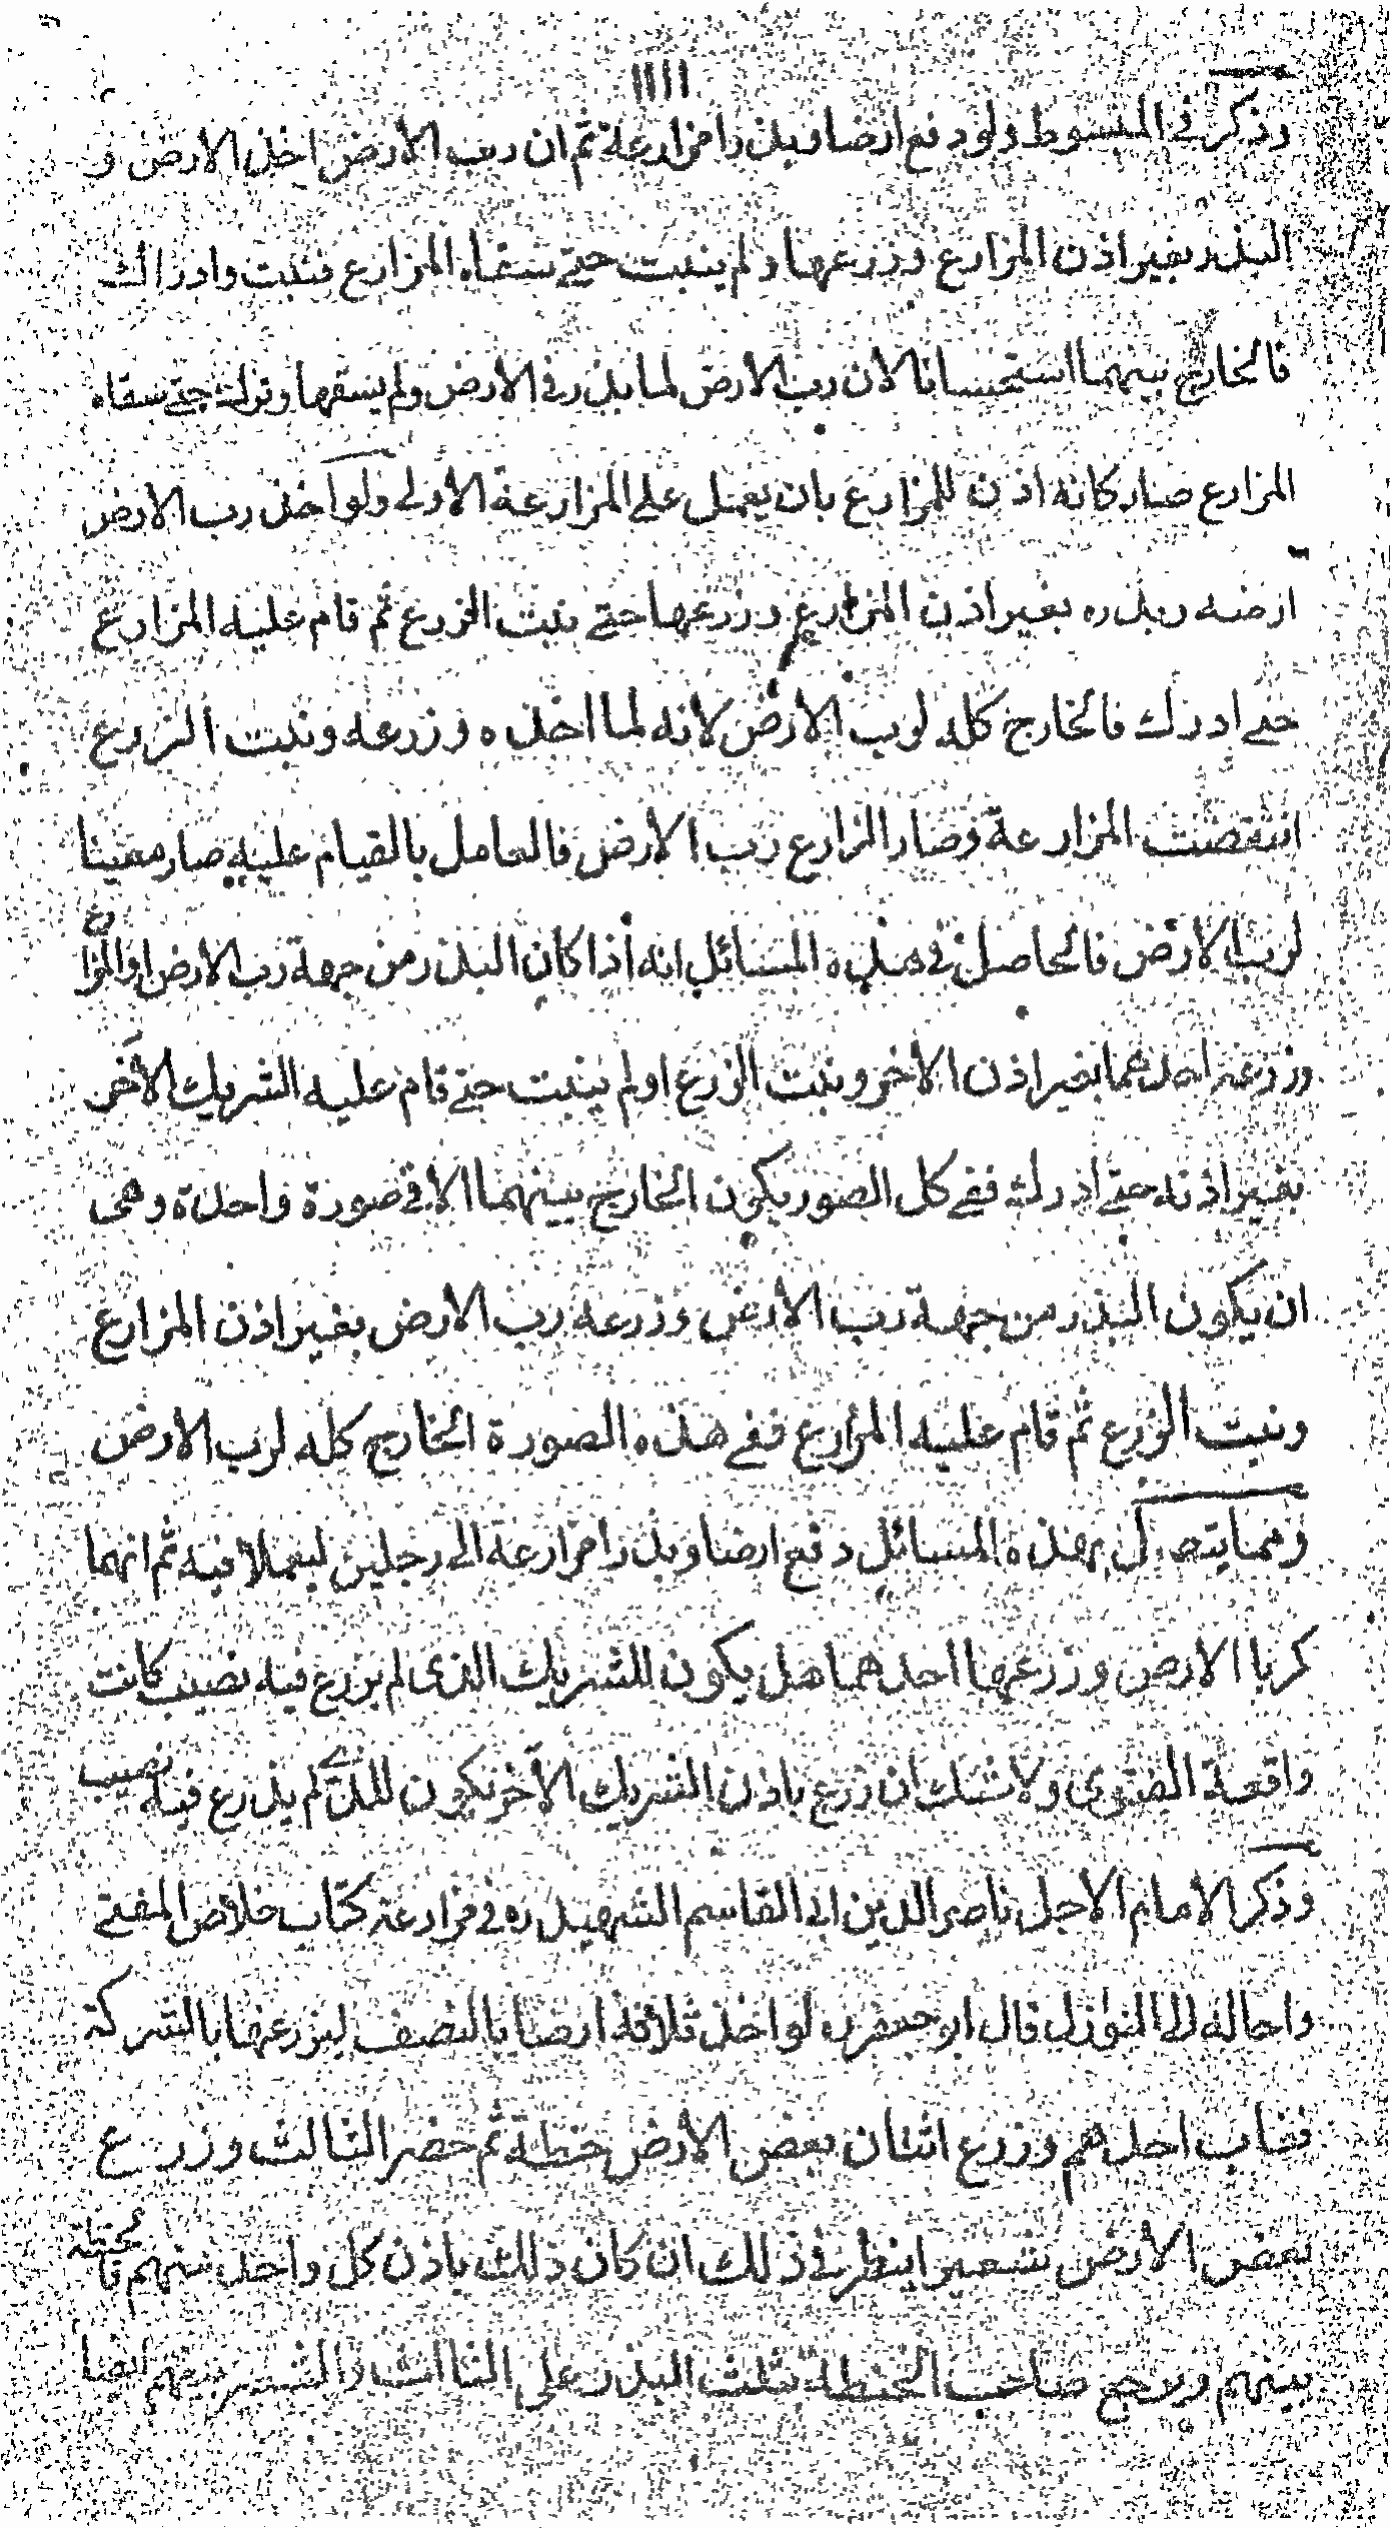 وذكر في المبسوط ولو دفع ارضا وبذرا مزارعة ثم ان رب الارض اخذ الارض و
البذر بغير اذن المزارع وزرعها ولم ينبت حتى سقاه المزارع فنبت وادرك
فالخارج بينهما استحسانا لان رب الارض لما بذر في الارض ولم يسقها وترك حتى سقاه
المزارع صار كانه اذن للمزارع بان يعمل على المزارعة الاولى ولو اخذ رب الارض
ارضه وبذره بغير اذن المزارع وزرعها حتى نبت الزرع ثم قام عليه المزارع
حتى ادرك فالخارج كله لرب الارض لانه لما اخذه وزرعه ونبت الزرع
انتقضت المزارعة وصار الزارع رب الارض فالعامل بالقيام عليه صار معينا
لرب الارض فالحاصل في هذه المسائل انه اذا كان البذر من جهة رب الارض او المزارع
وزرعه احدهما بغير اذن الاخر ونبت الزرع او لم ينبت حتى قام عليه الشريك الاخر
بغير اذنه حتى ادرك ففي كل الصور يكون الخارج بينهما الا في صورة واحدة وهى
ان يكون البذر من جهة رب الارض وزرعه رب الارض بغير اذن المزارع
ونبت الزرع ثم قام عليه المزارع ففي هذه الصورة الخارج كله لرب الارض
ومما يتصل بهذه المسائل دفع ارضا وبذرا مزارعة الى رجلين ليعملا فيه ثم انهما
كربا الارض وزرعها احدهما هل يكون للشريك الذى لم يزرع فيه نصيب كانت
واقعة الفتوى ولا شك ان زرع باذن الشريك الاخر يكون للذى لم يزرع فيه نصيب
وذكر الامام الاجل ناصر الدين ابى القاسم الشهيد ره في مزارعة كتاب خلاص المفتى
واحاله الى النوازل قال ابو جعفر ره لو اخذ ثلاثة ارضا بالنصف ليزرعها بالشركة
فغاب احدهم وزرع اثنان بعض الارض حنطة ثم حضر الثالث وزرع
بعض الارض شعيرا ينظر في ذلك ان كان ذلك باذن كل واحد منهم فالحنطة
بينهم ويرجع صاحب الحنطة بثلث البذر على الثالث والشعير بينهم ايضا